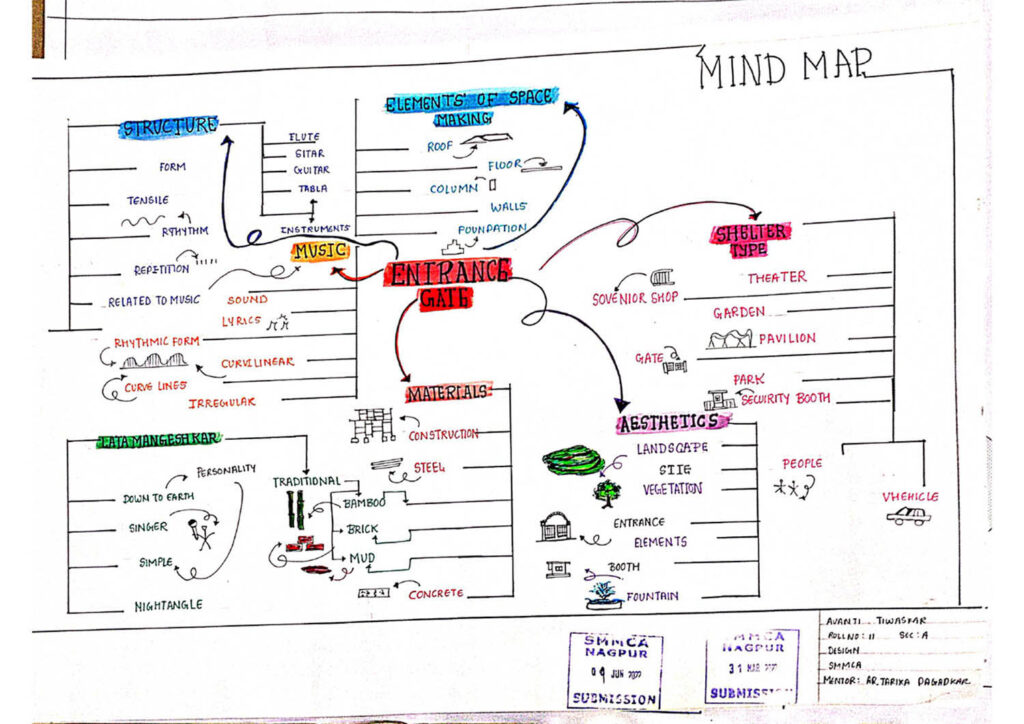 MIND MAP
STRUCTURE
FORM
TENSILE
RYTHYM
REPITETION
RELATED TO MUSIC
FLUTE
SITAR
GUITAR
TABLA
INSTRUMENTS
ELEMENTS' OF SPACE
MAKING
ROOF
FLOOR
COLUMN
WALLS
FOUNDATION
MUSIC
SOUND
LYRICS
RHYTHMIC FORM
CURVILINEAR
CURVE LINES
IRREGULAR
ENTRANCE
GATE
SHELTER
TYPE
THEATER
SOVENIOR SHOP
GARDEN
PAVILION
GATE
PARK
SECUIRITY BOOTH
PEOPLE
VHEHICLE
MATERIALS
CONSTRUCTION
STEEL
TRADITIONAL
BAMBOO
BRICK
MUD
CONCRETE
AESTHETICS
LANDSCAPE
VEGETATION
ENTRANCE
ELEMENTS
BOOTH
FOUNTAIN
LATA MANGESHKAR
PERSONALITY
DOWN TO EARTH
SINGER
SIMPLE
NIGHTANGLE
SMMCA
NAGPUR
JUN
SUBMISSION
NAGPUR
31 MAR
AVANTI TIWASKAR
ROLLNO: 11 SEC: A
DESIGN
SMMCA
MENTOR: AR. TARIKA DAGADKAR